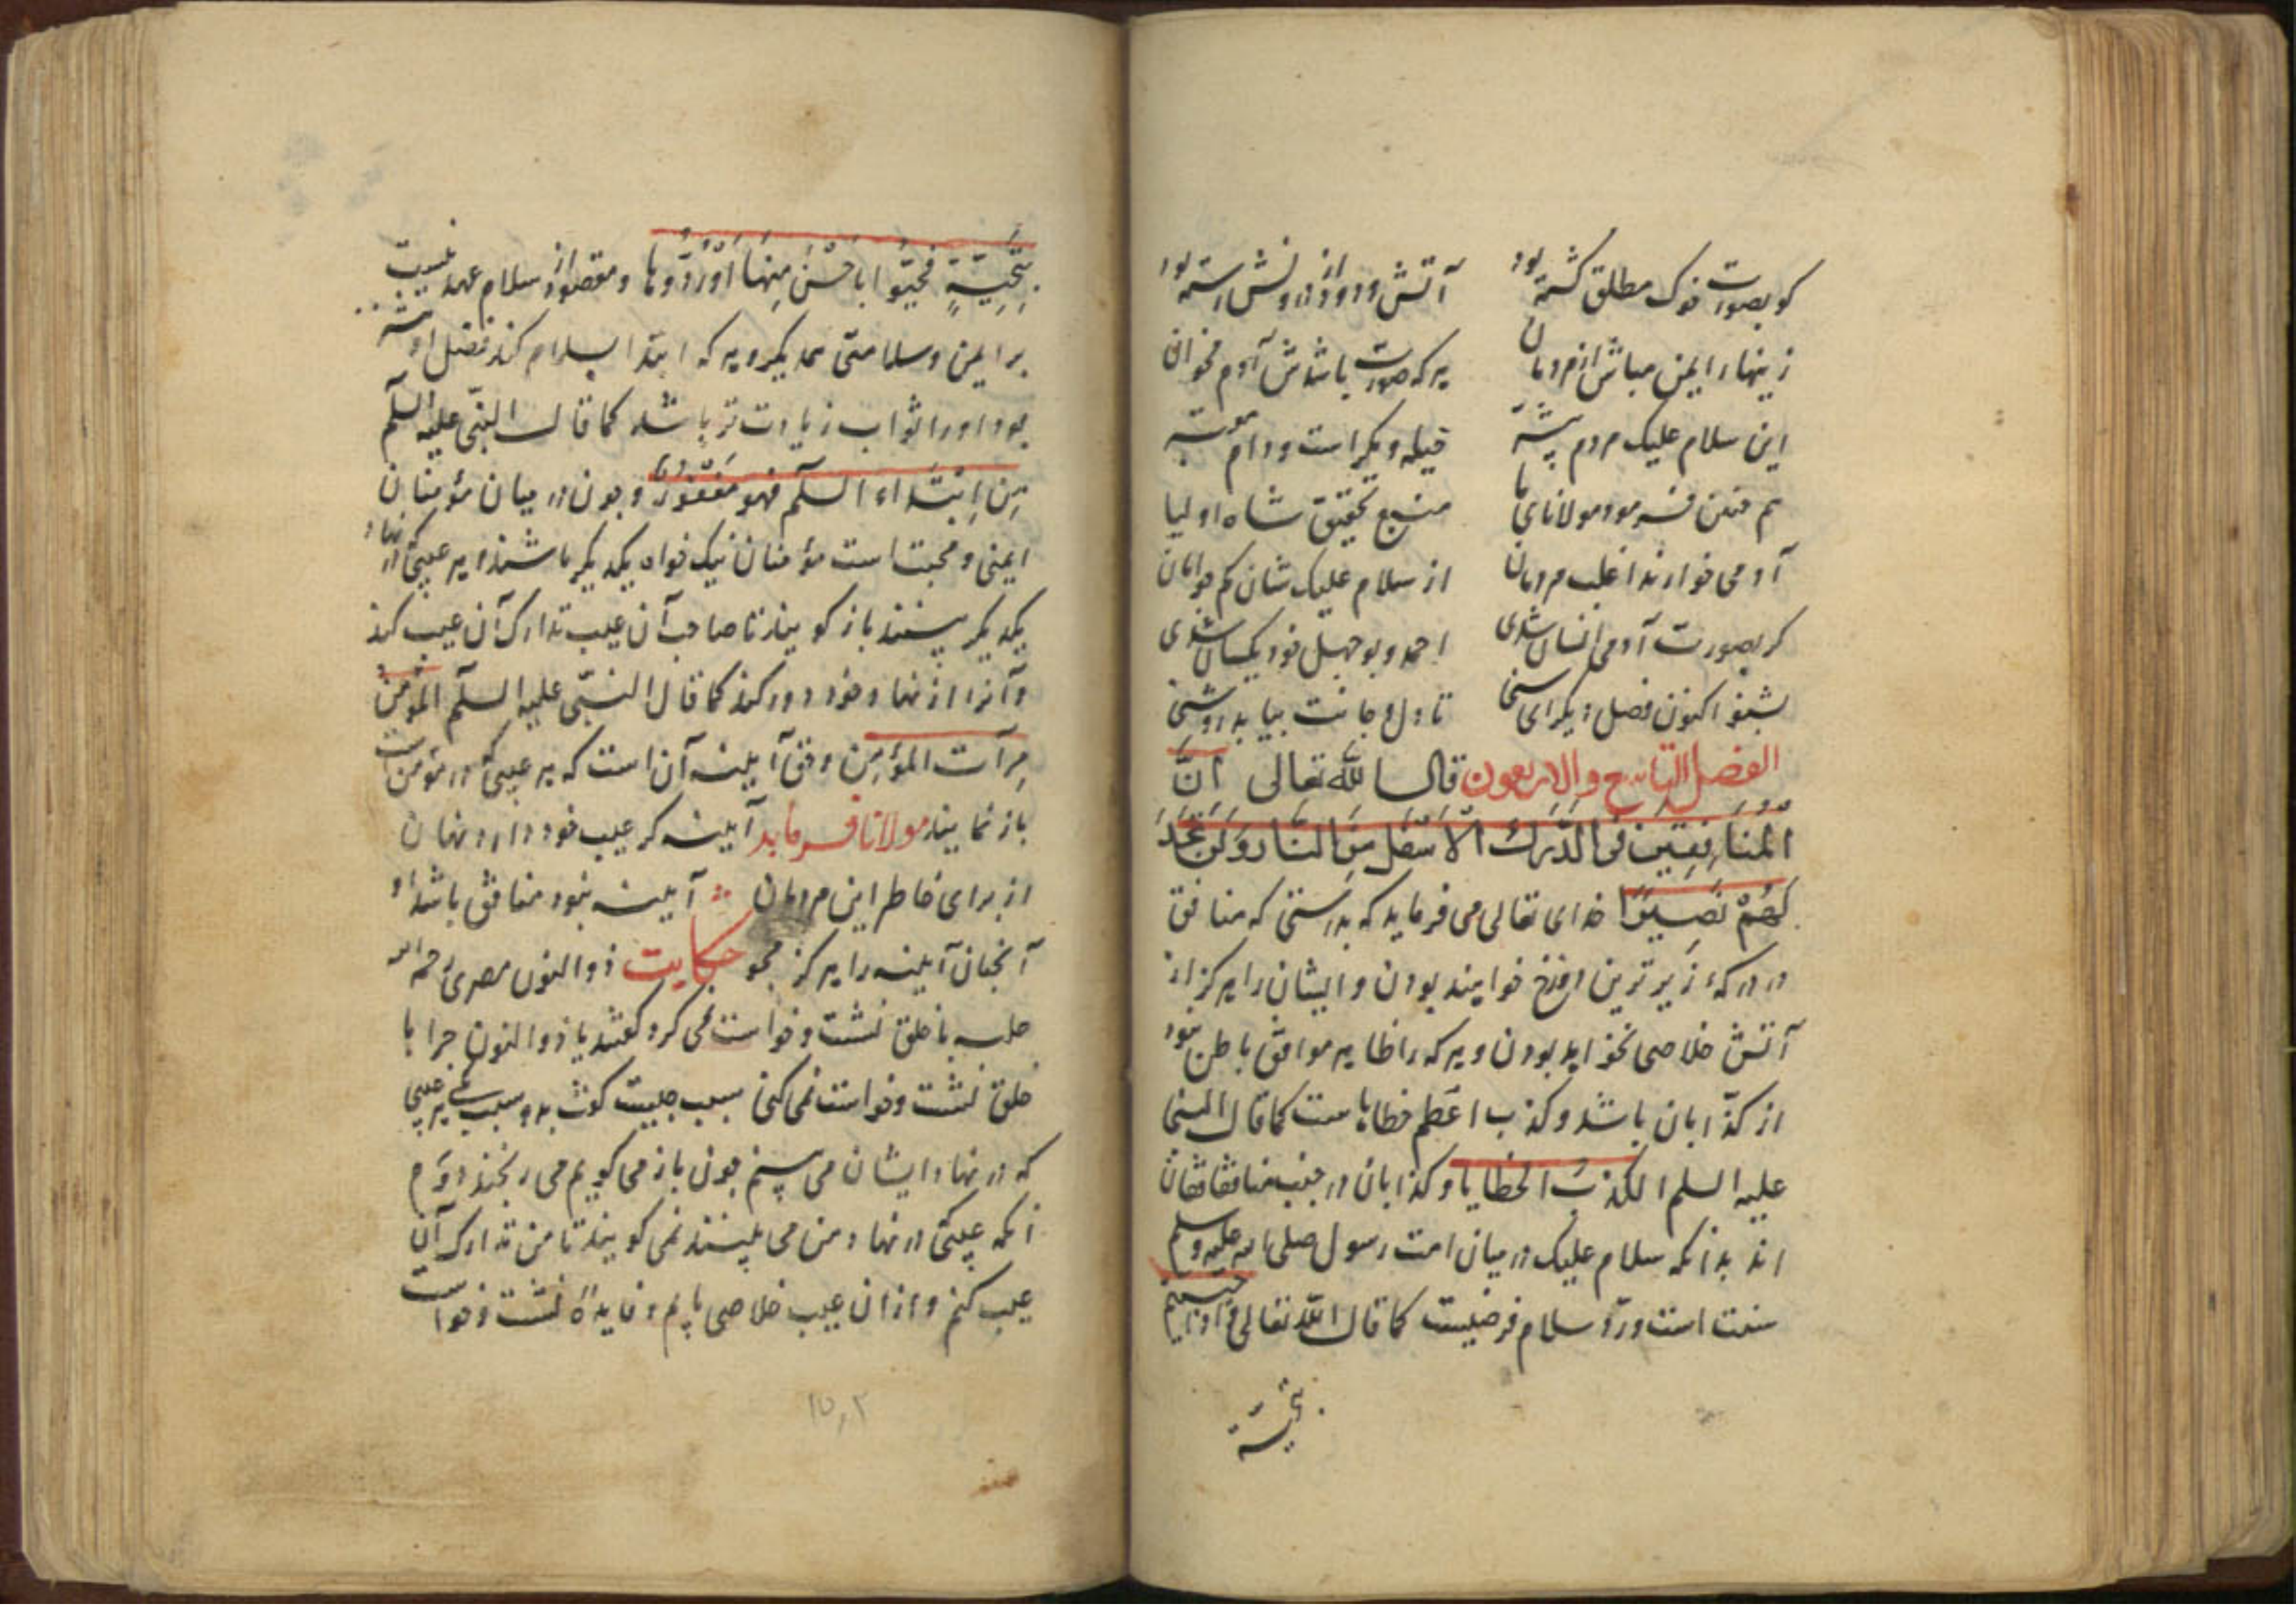 کو بصورت خوک مطلق کشته بود آتش و دود از درونش رسته بود
زینهار ایمن مباش از مردمان هر که صورت باشدش آدم مخوان
این سلام علیک مردم پیشه حیله دیکر است و دام
هم چنین فرمود مولانای ما منبع تحقیق شاه اولیا
آدمی خوارند اغلب مردمان از سلام علیک شان کم جو امان
کر بصورت آدمی انسان شدی احمد و بوجهل خود یکسان شدی
بشنو اکنون فصل دیکر ای سخی تا دل و جانت بیابد روشنی
الفصل التاسع والاربعون قال الله تعالی انَّ
الْمُنَافِقِینَ فِی الدَّرَكِ الْاَسْفَلِ مِنَ النَّارِ وَلَنْ تَجِدَ
لَهُمْ نَصِیرًا خدای تعالی می فرماید که بدرستی که منافق
در درکهٔ زیرترین دوزخ خواهند بودن و ایشان را هرکز از
آتش خلاصی نخواهد بودن و هر که را ظاهر موافق باطن نبود
از کذّابان باشد و کذب اعظم خطاهاست کما قال النبی
علیه السلم الکذب الخطایا و کذابان در جنب منافقان
اند بدانکه سلام علیک در میان امت رسول صلی الله علیه وسلم
سنت است و ردّ سلام فرضیست کما قال الله تعالی و اذا حییتم
بتحیة
بِتَحِیَّةٍ فَحَیُّوا بِاَحْسَنَ مِنْهَا اَوْ رُدُّوهَا و مقصود از سلام عهد بستیت
بر ایمن و سلامتی همدیکر و هر که ابتدا بسلام کند فضل اوشه
بود او را ثواب زیادت تر باشد کما قال النبّی علیه السلم
مِن اِبتداء السلم فهو مَغْفُورٌ و چون در میان مؤمنان
ایمنی و محبت است مؤمنان نیک خواه یکدیکر باشند و هر عیبی که در نهاد
یکدیکر بینند باز کویند تا صاحب آن عیب تدارک آن عیب کند
و آنرا از نهاد خود دور کند کما قال النبّی علیه السلم المؤمن
مِرآت المؤمِن و فنّ آیینه آن است که هر عیبی که در مؤمن است
باز نمایند مولانا فرماید آینه کر عیب خود دارد نهان
از برای خاطر این مردمان آیینه نبود منافق باشد او
آنچنان آیینه را هرکز مجو حکایت ذوالنون مصری رحمه الله
جلسه با خلق نشست و خواست نمی کرد کفتند یا ذوالنون چرا با
خلق نشست و خواست نمی کنی سبب چیست کفت بدو سبب یکی هر عیبی
که در نهاد ایشان می بینم چون باز می کویم می رنجند دوّم
آنکه عیبی که در نهاد من می بینند نمی کویند تا من تدارک آن
عیب کنم و از ان عیب خلاصی یابم و فایدهٔ نشست و خواست